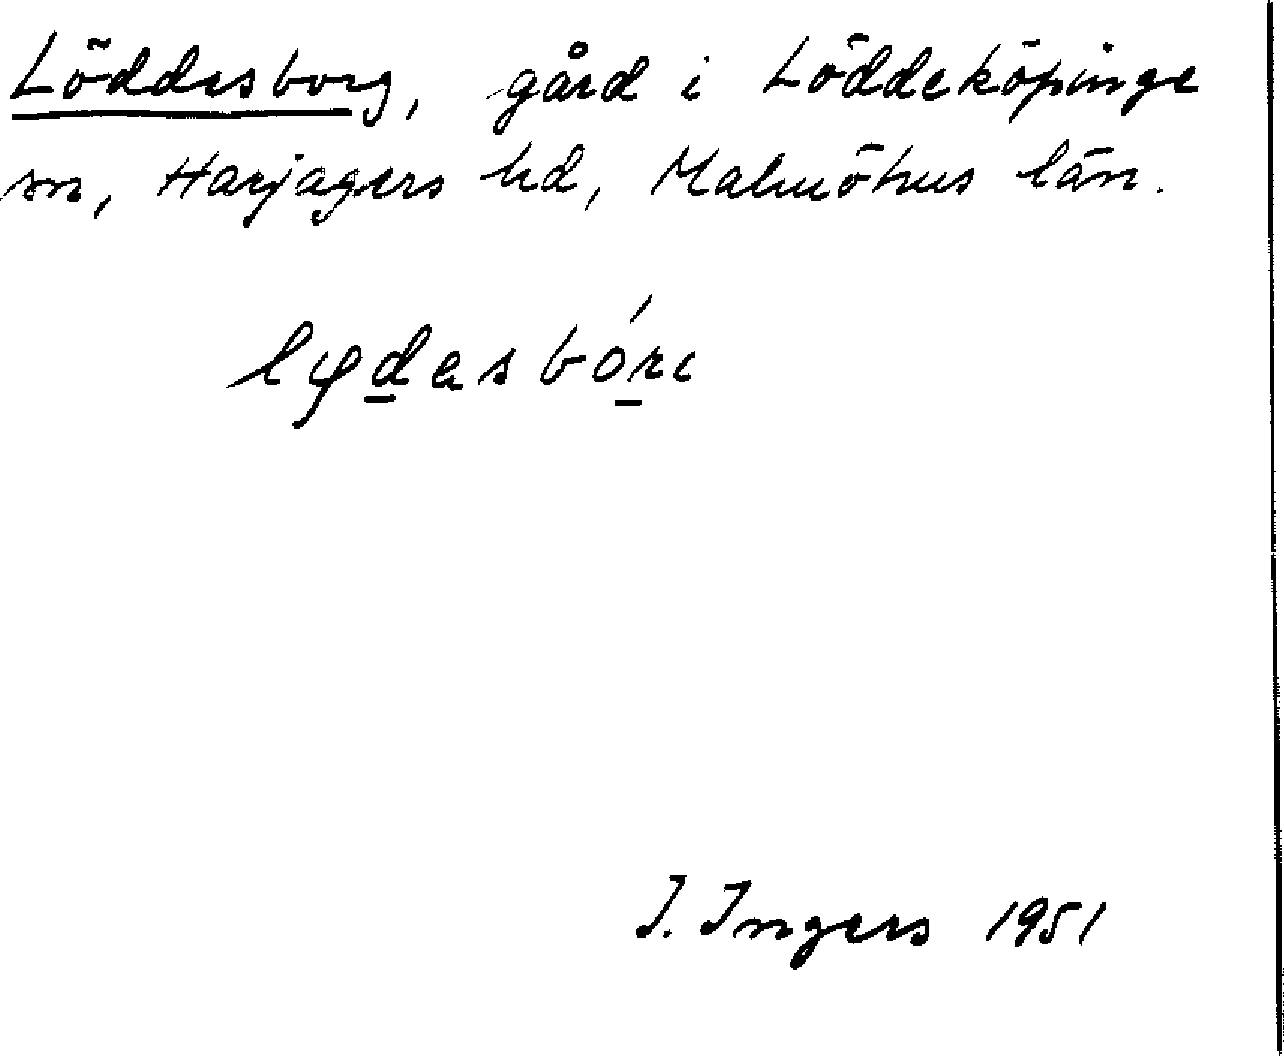 Löddesborg, gård i Löddeköpinge
sn, Harjagers hd, Malmöhus län.
lydasbórı
I. Ingers 1951